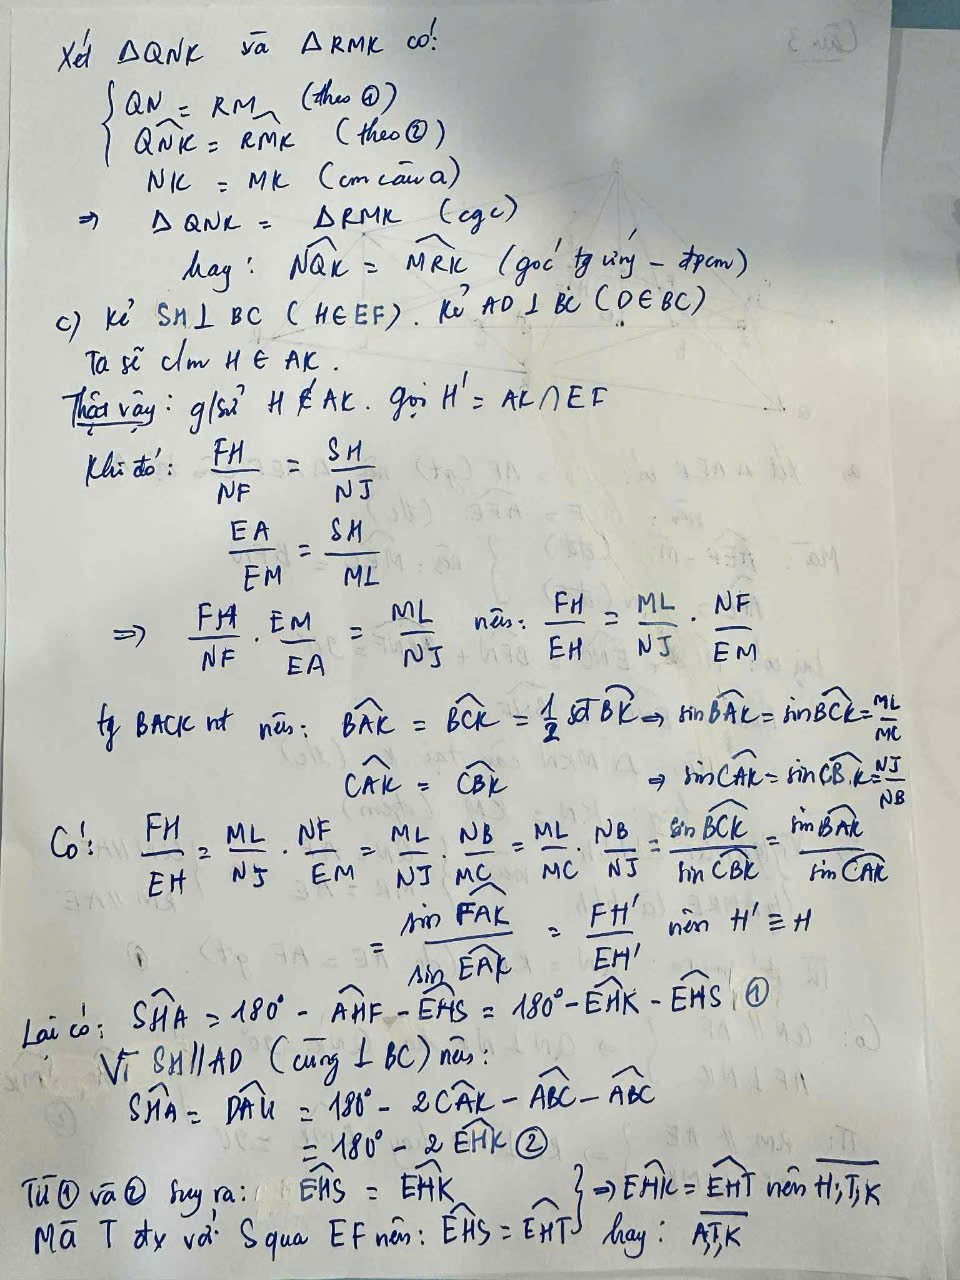 Xét ΔQNK và ΔRMK có:
QN = RM (theo ①)
∠QNK = ∠RMK (theo ②)
NK = MK (cm câu a)
⇒ ΔQNK = ΔRMK (cgc)
hay: ∠NQK = ∠MRK (góc tg ứng – đpcm)
c) Kẻ SH ⊥ BC (H ∈ EF). Kẻ AD ⊥ BC (D ∈ BC)
Ta sẽ c/m H ∈ AK.
Thật vậy: g/sử H ∉ AK. gọi H' = AK ∩ EF
Khi đó: FH/NF = SH/NJ
EA/EM = SH/ML
⇒ FH/NF . EM/EA = ML/NJ nên: FH/EH = ML/NJ . NF/EM
tg BACK nt nên: ∠BAK = ∠BCK = 1/2 sđ BK ⇒ sin∠BAK = sin∠BCK = ML/MC
∠CAK = ∠CBK ⇒ sin∠CAK = sin∠CBK = NJ/NB
Có: FH/EH = ML/NJ . NF/EM = ML/NJ . NB/MC = ML/MC . NB/NJ = sin∠BCK/sin∠CBK = sin∠BAK/sin∠CAK
= sin∠FAK/sin∠EAK = FH'/EH' nên H' ≡ H
Lại có: ∠SHA = 180° - ∠AHF - ∠EHS = 180° - ∠EHK - ∠EHS ①
Vì SH // AD (cùng ⊥ BC) nên:
∠SHA = ∠DAK = 180° - 2∠CAK - ∠ABC - ∠ABC
= 180° - 2∠EHK ②
Từ ① và ② suy ra: ∠EHS = ∠EHK } ⇒ ∠EHK = ∠EHT nên H,T,K
Mà T đx với S qua EF nên: ∠EHS = ∠EHT } hay: A,T,K